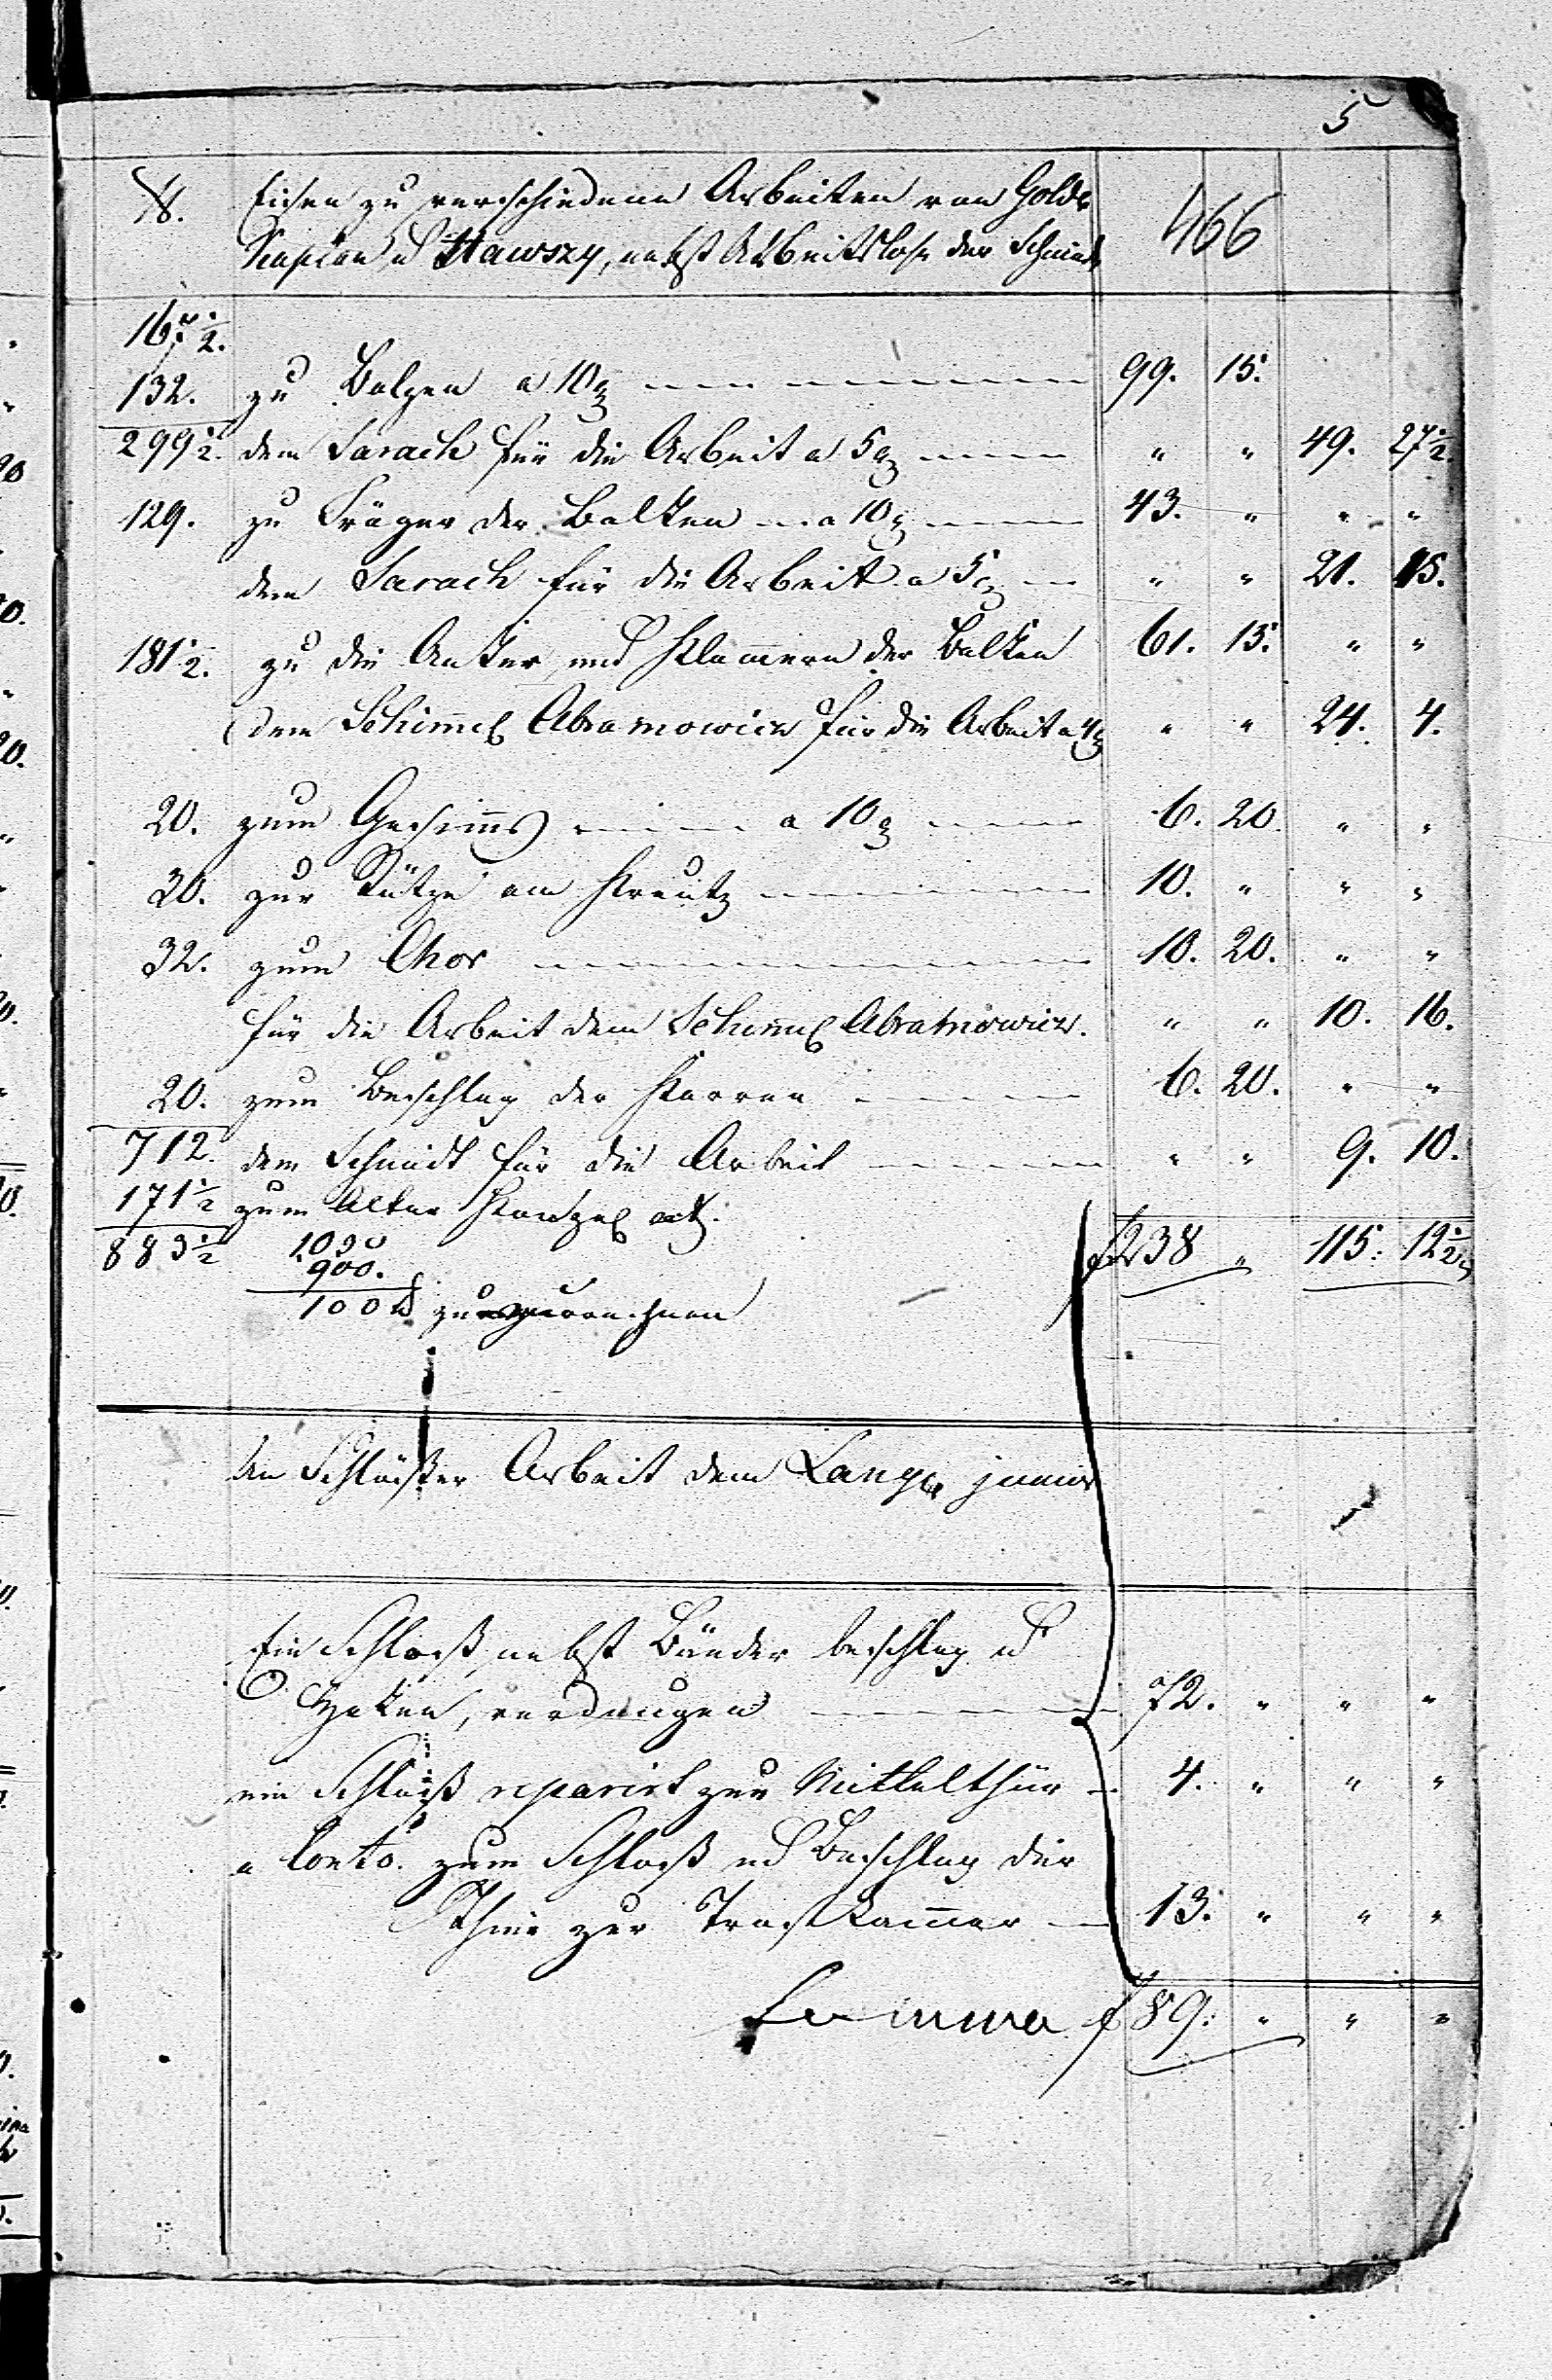 5
℔. Eisen zu verschiedene Arbeiten von Golde 466
Kaplan u Stawszy, nebst Arbeitslohn der Schmiede
167½.
132. zu Bolzen a 10 g 99. 15.
299½. dem Sarach für die Arbeit a 5 g " " 49. 27½.
129. zu Träger der Balken a 10 g 43. " " "
dem Sarach für die Arbeit a 5 g " " 21. 15.
181½. zu die Anker und Klamern der Balken 61. 15. " "
dem Schimel Abramowicz für die Arbeit a 4 g " " 24. 4.
20. zum Gesims a 10 g 6. 20. " "
30. zur Stütze am Kreutz 10. " " "
32. zum Chor 10. 20. " "
für die Arbeit dem Schimel Abramowicz. " " 10. 16.
20. zum Beschlag der Karren 6. 20. " "
712. dem Schmidt für die Arbeit " " 9. 10.
171½ zum Altar Kanzel
883½ 1000 f 238 " 115. 12½
900.
100 ℔ zu
An Schlößer Arbeit dem Lange junior
Ein Schloß nebst Bänder beschlag u
Haken, verdungen 72. " " "
ein Schloß reparirt zur Mittelthür 4. " " "
a Conto. zum Schloß ud Beschlag der
Thür zur Trestkammer 13. " " "
Summa f 89. " " "